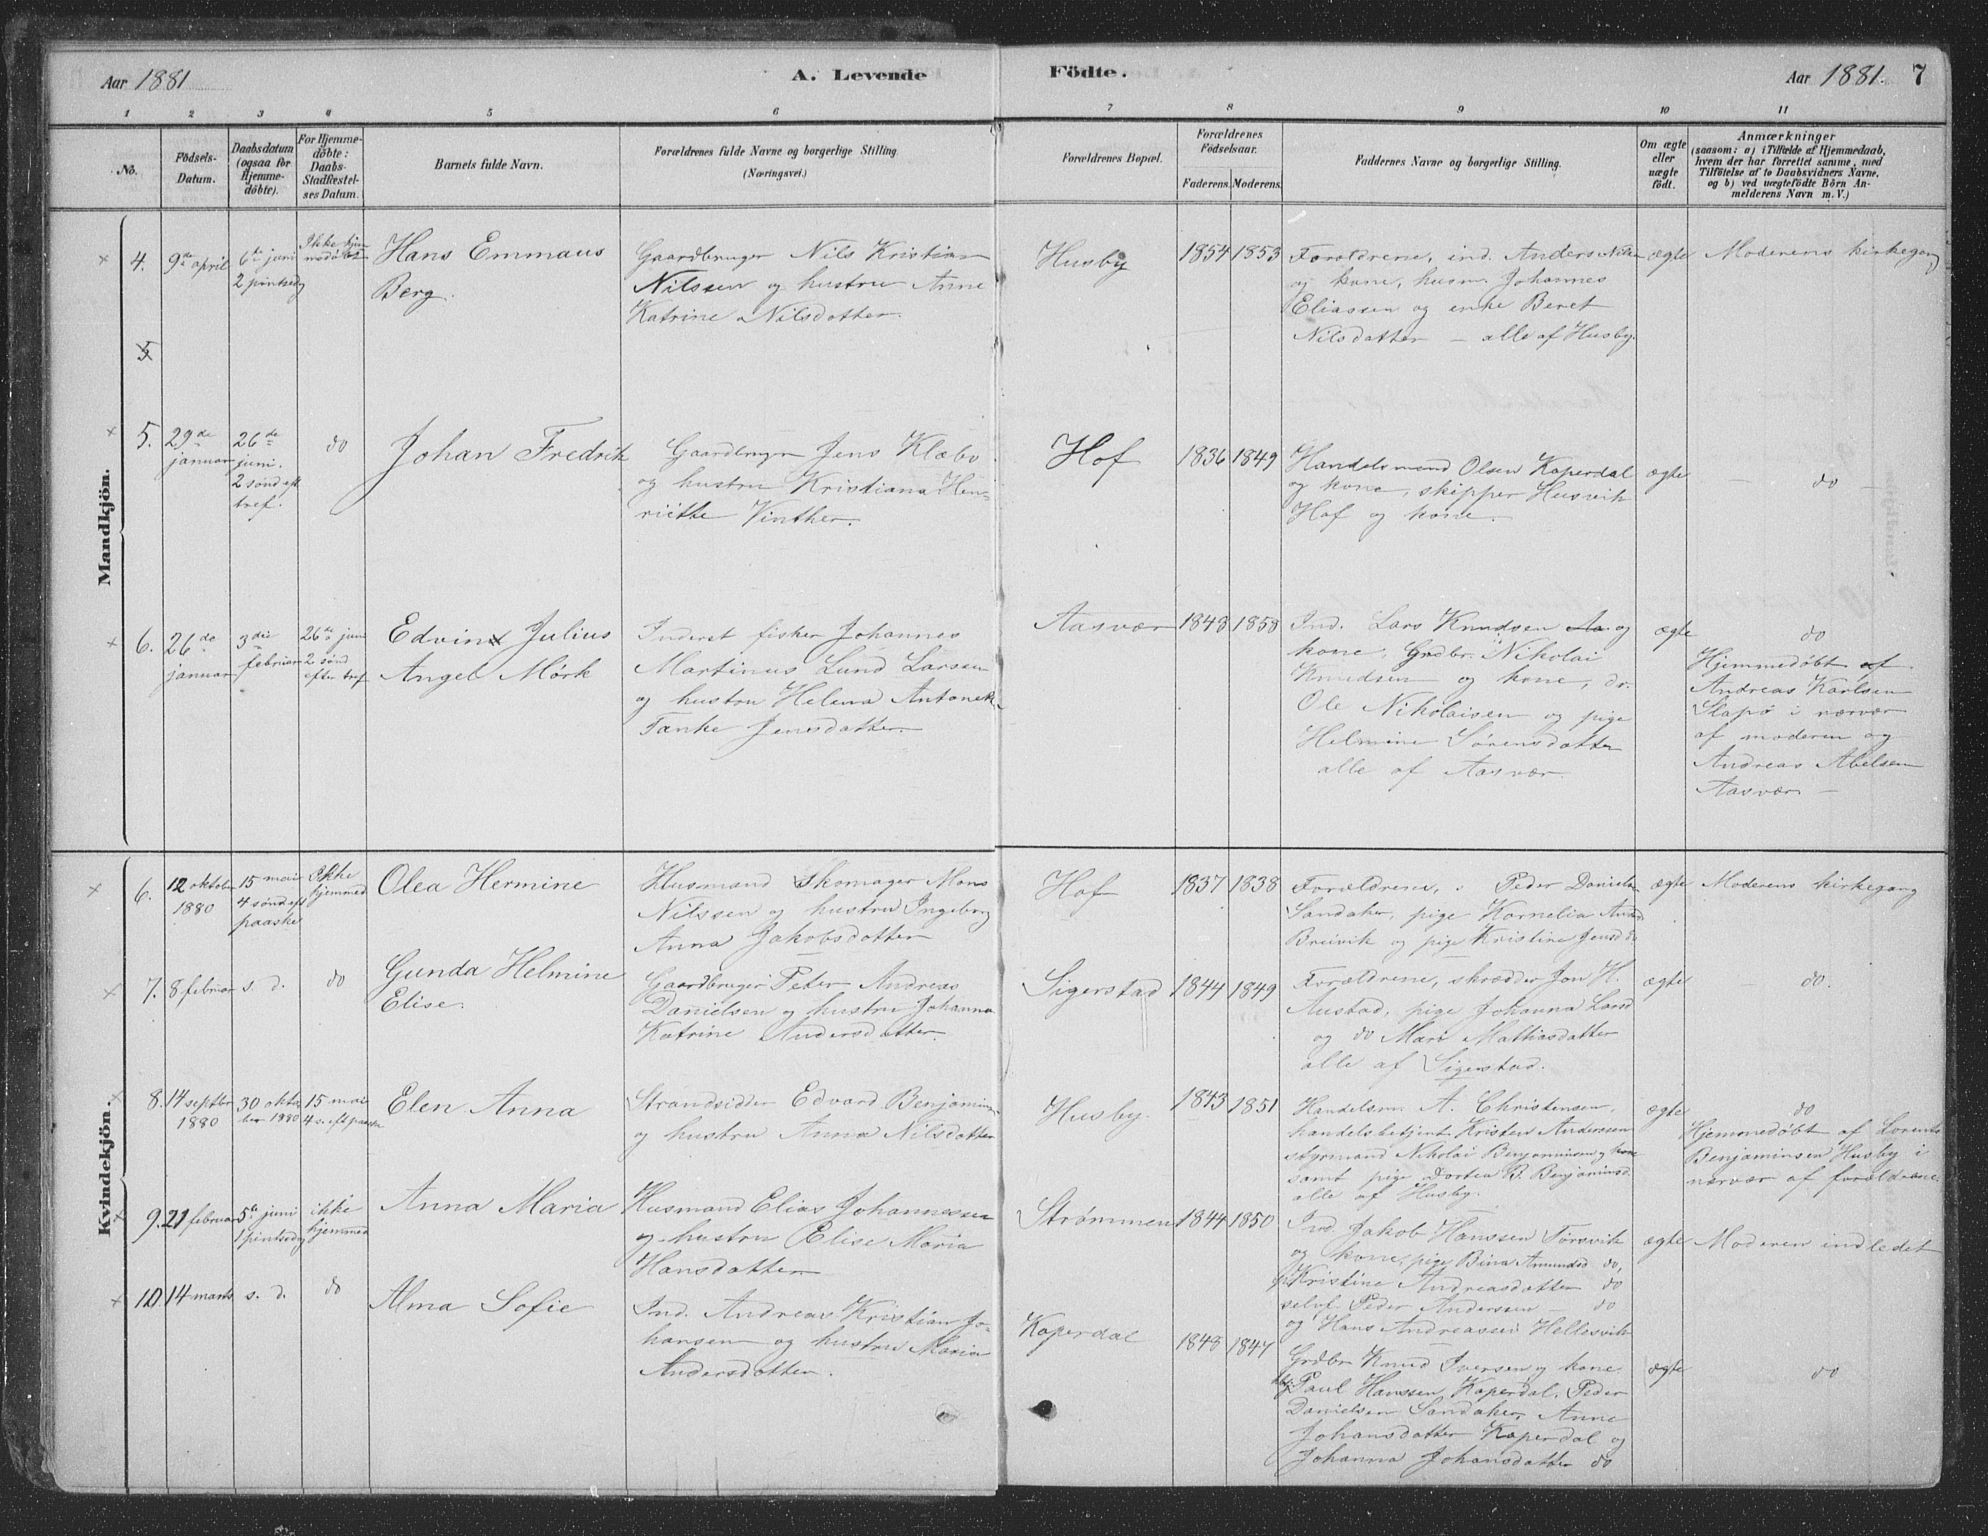 Aar 1881
A. Levende
Födte.
Aar 1881.
7
1 2 3 4 5 6 7 8 9 10 11
No.
Födsels-
Datum.
Daabsdatum
(ogsaa for
Hjemme-
döbte).
For Hjemme-
döbte:
Daabs-
Stadfæstel-
ses Datum.
Barnets fulde Navn.
Forældrenes fulde Navne og borgerlige Stilling.
(Næringsvei.)
Forældrenes Bopæl.
Forældrenes
Födselsaar.
Faderens. Moderens.
Faddernes Navne og borgerlige Stilling.
Om ægte
eller
uægte
födt.
Anmærkninger
(saasom: a) i Tilfælde af Hjemmedaab,
hvem der har forrettet samme, med
Tilföielse af to Daabsvidners Navne,
og b) ved uægtefödte Börn An-
melderens Navn m. V.)
Mandkjön.
× 4.
9de april
6te juni
2 pintsedg
Ikke hjem
medøbt
Hans Emmaus
Berg.
Gaardbruger Nils Kristian
Nilssen og hustru Anne
Katrine Nilsdatter.
Husby
1854 1853
Foreldrene, ind. Anders Nils
og kone, husm. Johannes
Eliassen og enke Beret
Nilsdatter – alle af Husby.
ægte
Moderens kirkegang
5
× 5.
29de
januar
26de
juni.
2 sønd eft
tref.
do
Johan Fredrik
Gaardbruger Jens Klæbo
og hustru Kristiana Hen-
riette Vinther.
Hof
1836 1849
Handelsmand Olsen Kaperdal
og kone, skipper Husvik
Hof og kone.
ægte
– do
× 6.
26de
januar
3die
februar
26de juni
2 sønd
efter tref
Edvin Julius
Angel Mörk
Inderst fisker Johannes
Martinus Lund Larsen
og hustru Helena Antonet-
Tanke Jensdatter.
Aasvær
1848 1858
Ind. Lars Knudsen Aa og
kone, Grdbr. Nikolai
Knudsen og kone, do.
Ole Nikolaisen og pige
Helmine Sørensdatter
alle af Aasvær.
ægte
do
Hjemmedøbt af
Andreas Karlsen
Slapø i nærvær
af moderen og
Andreas Abelsen
Aasvær –
Kvindekjön.
× 6.
12 oktober
1880
15 mai
4 sønd eft
paaske
Ikke
hjemmed
Olea Hermine
Husmand Skomager Mons
Nilssen og hustru Ingeborg
Anna Jakobsdatter
Hof
1837 1838
Forældrene, Peder Daniels
Sandaker, pige Kornelia
Breivik og pige Kristine Jensd do
ægte
Moderens kirkegang
× 7.
8 februar
s. d.
do
Gunda Helmine
Elise.
Gaardbruger Peter Andreas
Danielsen og hustru Johanna
Katrine Andersdatter.
Sigerstad
1844 1849
Forældrene, skrædder Jon H.
Austad, pige Johanna Larsd
og do Mari Mathiasdatter
alle af Sigerstad.
ægte
– do.
8.
14 septbr
1880
30 okto
ber 1880
15 mai
4 s. eft paaske
Elen Anna
Strandsidder Edvard Benjamin-
og hustru Anna Nilsdatter
Husby.
1843 1851
Handelsm. A. Christensen,
handelsbetjent Kristen Anderssen
styrmand Nikolai Benjaminsen og kone
samt pige Dortea B. Benjaminsd.
alle af Husby.
ægte
do
Hjemmedøbt af Lorents
Benjaminsen Husby i
nærvær af forældrene.
× 9.
21 februar
5te juni
1 pintsedg
ikke
hjemmed
Anna Maria
Husmand Elias Johannessen
og hustru Elise Maria
Hansdatter
Strømmen
1844 1850
Ind. Jakob Hanssen Torsvik
og kone, pige Bina Amundsd do,
Kristine Andreasdatter do
selvf. Peder Anderssen – do
og Hans Andreassen Hellesvik
ægte
Moderen indledet
× 10
14 marts
s. d.
do
Alma Sofie
Ind. Andreas Kristian Jo-
hansen og hustru Maria
Andersdatter.
Kaperdal
1848 1847
Grdbr Knud Iversen og kone
Paul Hanssen Kaperdal, Peder
Danielsen Sandaker, Anne
Johansdatter Kaperdal og
Johanna Johansdatter do
ægte
do